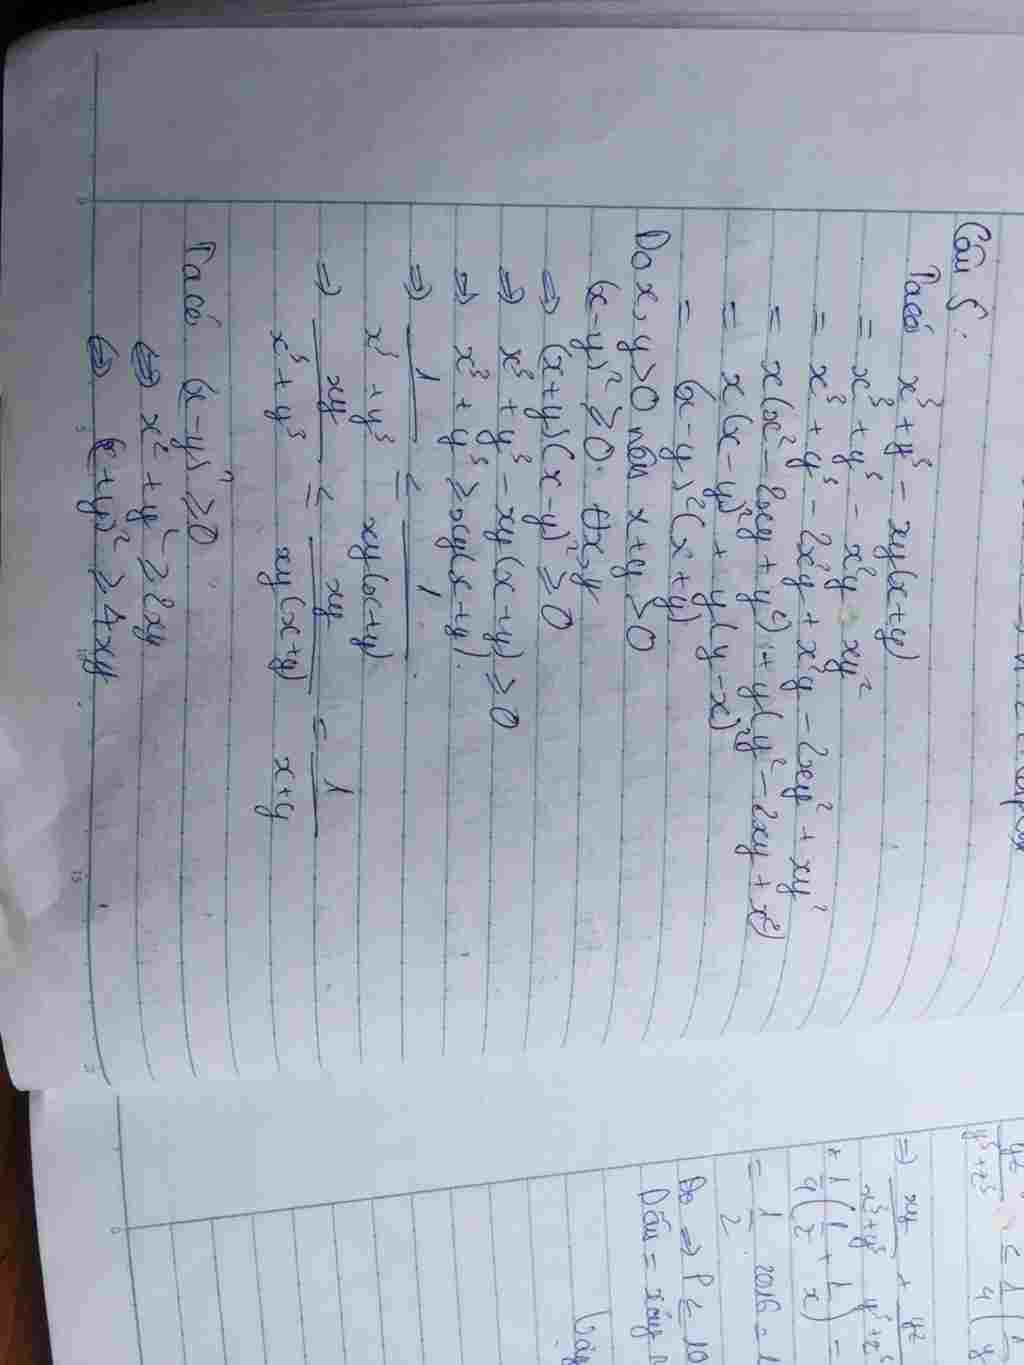 Câu 5:
Ta có x³ + y³ - xy(x+y)
= x³ + y³ - x²y - xy²
= x³ + y³ - 2x²y + x²y - 2xy² + xy²
= x(x² - 2xy + y²) + y(y² - 2xy + x²)
= x(x-y)² + y(y-x)²
= (x-y)²(x+y)
Do x, y > 0 nên x+y > 0
(x-y)² ≥ 0 ∀x,y
⇒ (x+y)(x-y)² ≥ 0
⇒ x³ + y³ - xy(x+y) ≥ 0
⇒ x³ + y³ ≥ xy(x+y).
⇒ 1/(x³ + y³) ≤ 1/(xy(x+y)).
⇒ xy/(x³ + y³) ≤ xy/(xy(x+y)) = 1/(x+y)
Ta có (x-y)² ≥ 0
⇔ x² + y² ≥ 2xy
⇔ (x+y)² ≥ 4xy.
yz/(y³+z³) ≤ 1/4(
⇒ xy/(x³+y³) +
+ 1/4(1/z + 1/x) =
= 1/2 . 2016 = 1
Do ⇒ P ≤ 10
Dấu = xảy